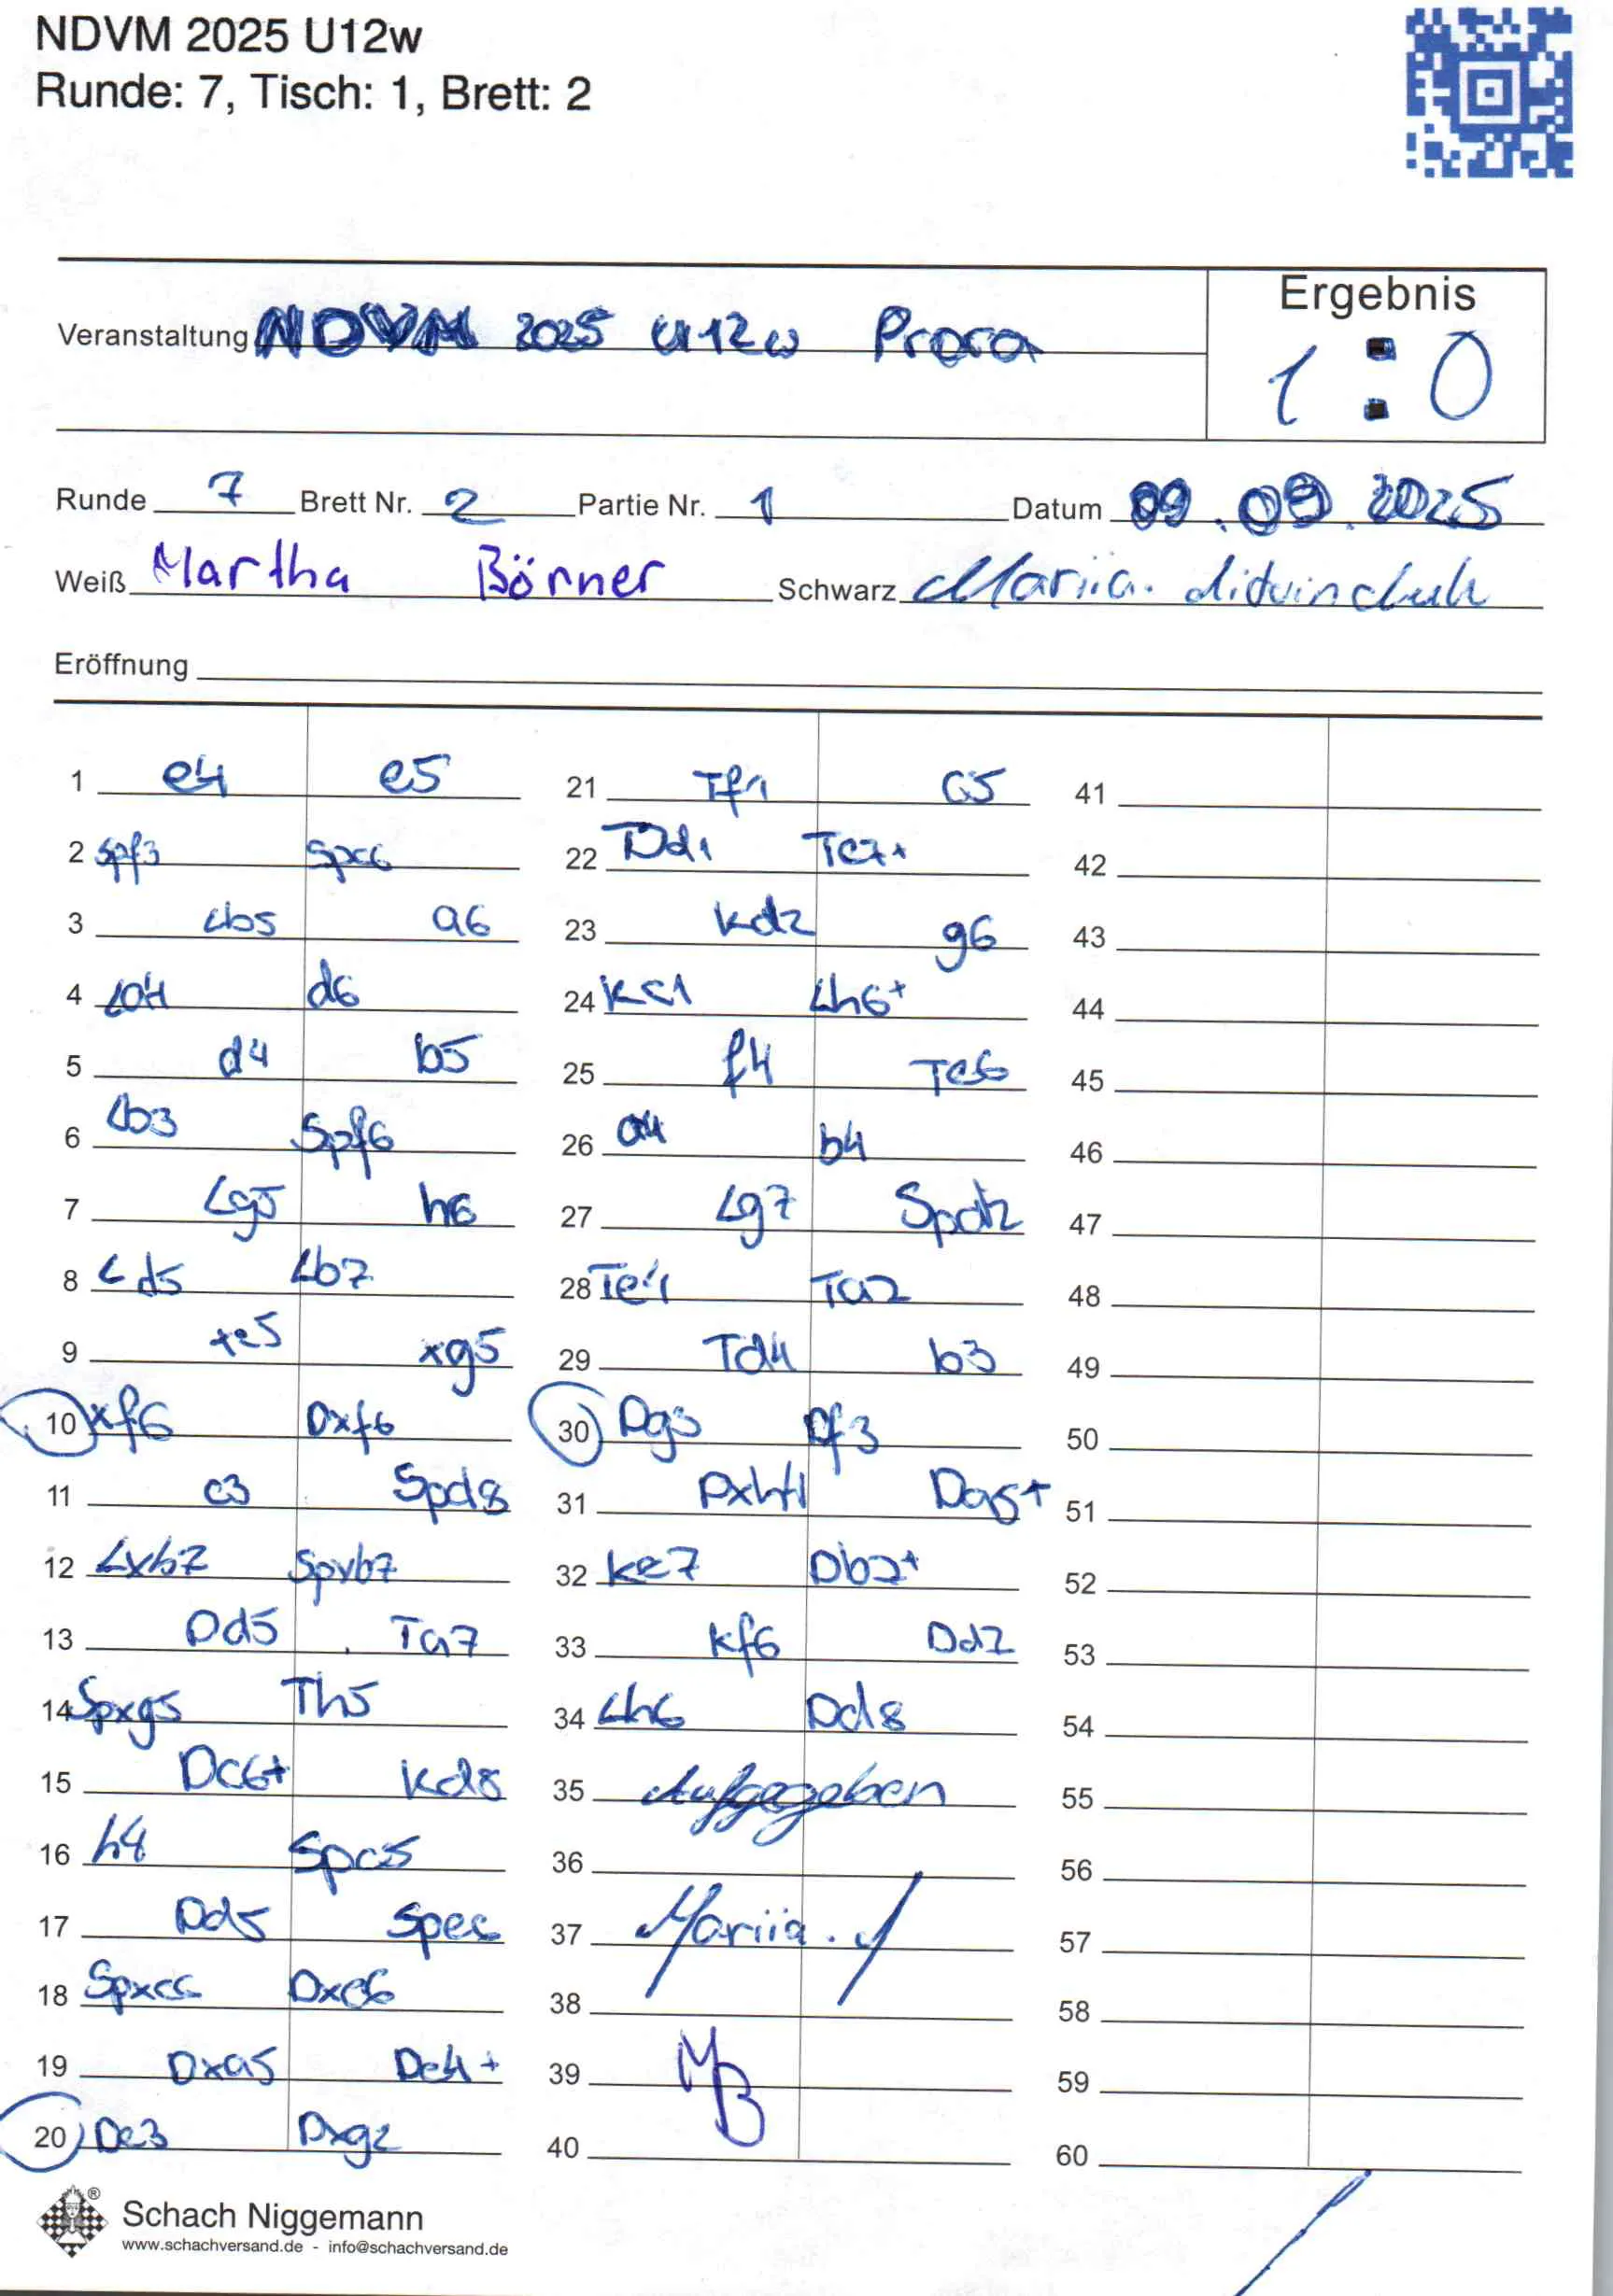 NDVM 2025 U12w
Runde: 7, Tisch: 1, Brett: 2
Ergebnis
Veranstaltung NDVM 2025 U12w Prora
1 : 0
Runde 7 Brett Nr. 2 Partie Nr. 1 Datum 09.09.2025
Weiß Martha Börner Schwarz Mariia. Litvinchuk
Eröffnung
1 e4 e5 21 Tf1 c5 41
2 Spf3 Spc6 22 Dd1 Te7+ 42
3 Lb5 a6 23 Kd2 g6 43
4 La4 d6 24 Kc1 Lh6+ 44
5 d4 b5 25 f4 Te6 45
6 Lb3 Spf6 26 a4 b4 46
7 Lg5 h6 27 Lg7 Spd2 47
8 Ld5 Lb7 28 Te1 Ta2 48
9 xe5 xg5 29 Td4 b3 49
10 xf6 Dxf6 30 Dg3 Df3 50
11 c3 Spd8 31 Dxh4 Dg5+ 51
12 Lxb7 Spxb7 32 Ke7 Db2+ 52
13 Dd5 Ta7 33 Kf6 Dd2 53
14 Spxg5 Th5 34 Lh6 Dd8 54
15 Dc6+ Kd8 35 Aufgegeben 55
16 h4 Spc5 36 56
17 Dd5 Spe6 37 Mariia. 57
18 Spxe6 Dxe6 38 58
19 Dxa5 De4+ 39 MB 59
20 De3 Dxg2 40 60
Schach Niggemann
www.schachversand.de - info@schachversand.de